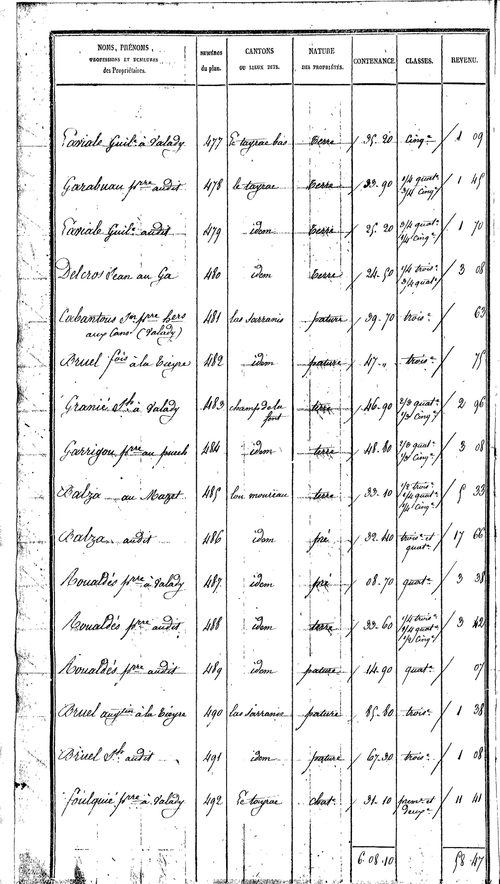 NOMS, PRÉNOMS, PROFESSIONS ET DEMEURES des Propriétaires. NUMÉROS du plan. CANTONS OU LIEUX DITS. NATURE DES PROPRIÉTÉS. CONTENANCE. CLASSES. REVENU.
Guil.e à Valady 477 Le tayrac bas terre 35.20 Cinq.e 1 09
p.rre audit 478 le tayrac terre 33.90 1/4 quat.e 3/4 Cinq.e 1 45
Guil.e audit 479 idem terre 25.20 3/4 quat.e 1/4 Cinq.e 1 70
Delcros Jean au Ga 480 idem terre 24.50 1/4 trois.e 3/4 quat.e 3 08
Cabantous p.rre hers 481 las Sarranis pature 39.70 trois.e 63
aux Cans (Valady)
Bruel fois à la Vieyre 482 idem pature 47.,, trois.e 75
Granié à Valady 483 champ de la font terre 46.90 2/3 quat.e 1/3 Cinq.e 2 96
Garrigou p.rre au puech 484 idem terre 48.80 2/3 quat.e 1/3 Cinq.e 3 08
Balza au Mazet 485 lou mouriau terre 33.10 1/2 trois.e 1/4 quat.e 1/4 Cinq.e 5 33
Balza audit 486 idem pré 32.40 trois.e et quat.e 17 66
Roualdés p.rre à Valady 487 idem pré 08.70 quat.e 3 38
Roualdés p.rre audit 488 idem terre 33.60 1/4 trois.e 1/4 quat.e 1/2 Cinq.e 3 42
Roualdés p.rre audit 489 idem pature 14.90 quat.e 07
Bruel à la Vieyre 490 las Sarranis pature 85.80 trois.e 1 38
Bruel audit 491 idem pature 67.30 trois.e 1 08
foulquié p.rre à Valady 492 Le tayrac chat. 31.10 prem.e et deux.e 11 41
6.08.10 58.47